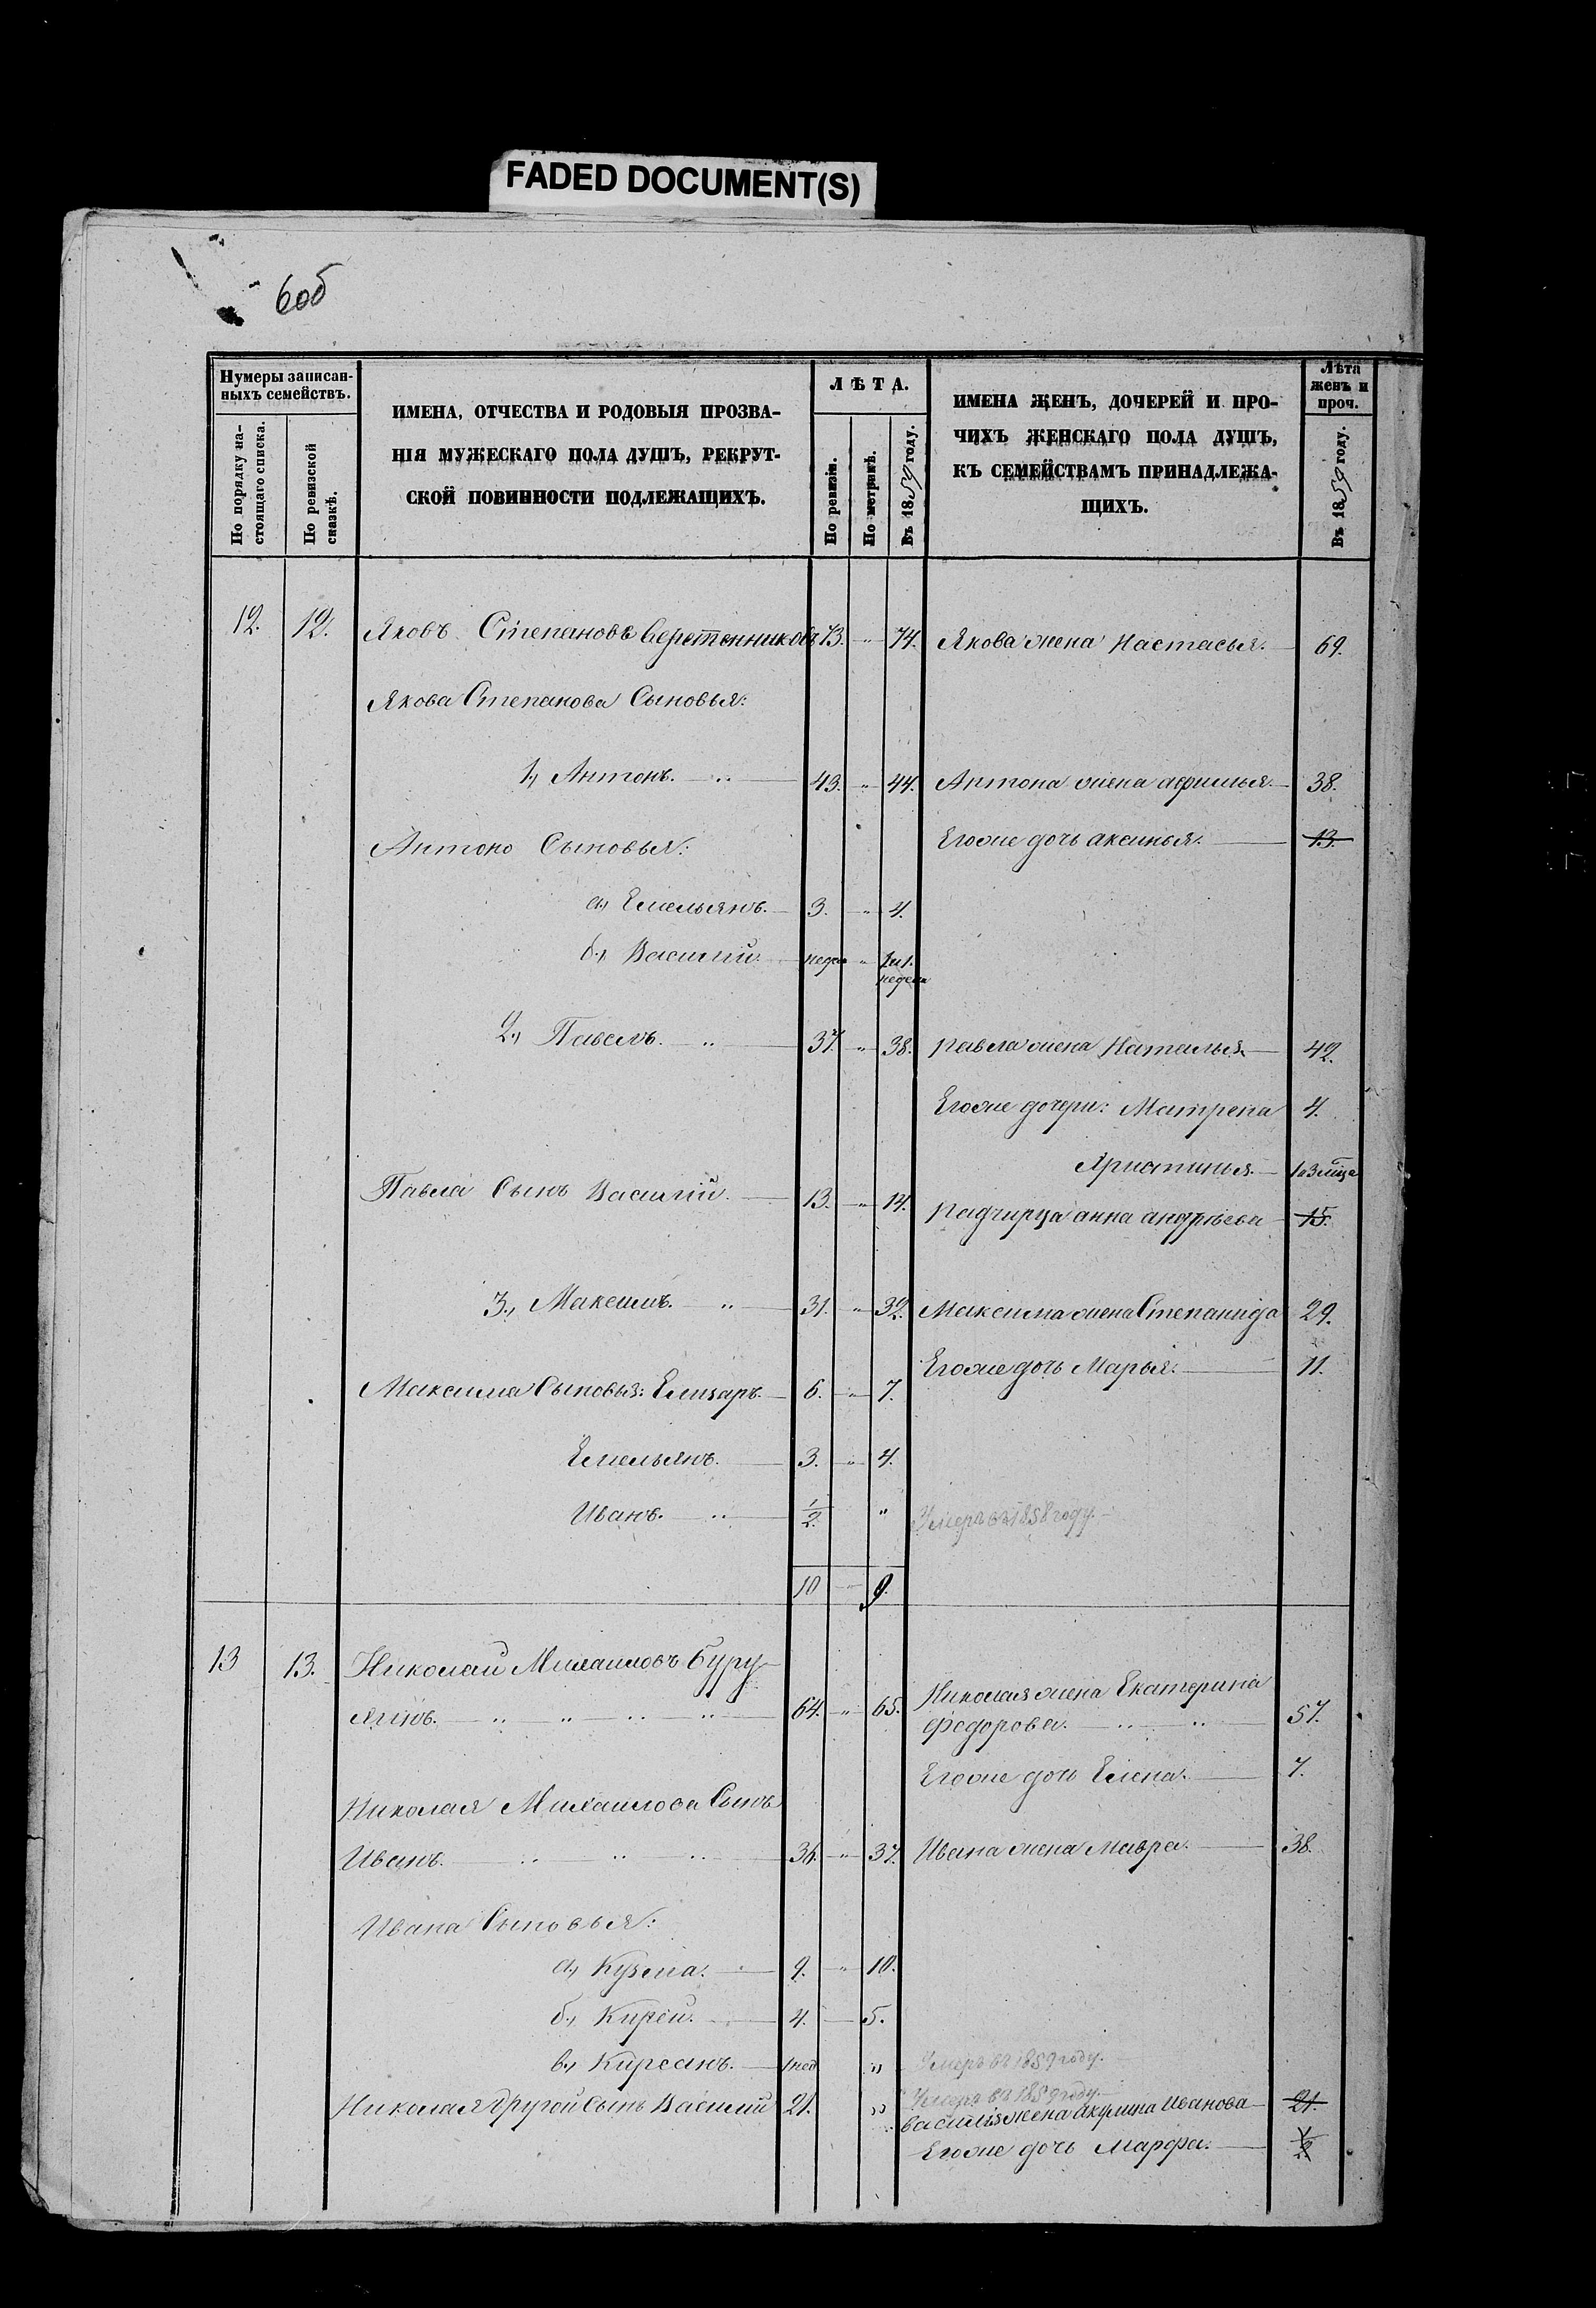 FADED DOCUMENT(S)
6об
Нумеры записан-
ныхъ семействъ.
По порядку на-
стоящаго списка.
По ревизской
сказкѣ.
ИМЕНА, ОТЧЕСТВА И РОДОВЫЯ ПРОЗВА-
НІЯ МУЖЕСКАГО ПОЛА ДУШЪ, РЕКРУТ-
СКОЙ ПОВИННОСТИ ПОДЛЕЖАЩИХЪ.
ЛѢТА.
По ревизіи.
По метрикѣ.
Въ 1859 году.
ИМЕНА ЖЕНЪ, ДОЧЕРЕЙ И ПРО-
ЧИХЪ ЖЕНСКАГО ПОЛА ДУШЪ,
КЪ СЕМЕЙСТВАМЪ ПРИНАДЛЕЖА-
ЩИХЪ.
Лѣта
женъ и
проч.
Въ 1859 году.
12. 12. Яковъ Степановъ Веретенниковъ 73. " 74. Якова жена Настасья. 69.
Якова Степанова Сыновья:
1, Антонъ. 43. " 44. Антона жена афимья 38.
Антоно Сыновья: Егоже дочь аксинья. 13.
а, Емельянъ. 3. " 4.
б, Василій. недел " 1 и 1.
недели
2, Павелъ. 37. " 38. павла жена Наталья 42.
Егоже дочери: Матрена 4.
Христинья. 1 и 3 мца
Павла Сынъ Василій. 13. " 14. падчирца анна андрѣева 15.
3, Максимъ. 31. " 32. Максима жена Степанида 29.
Егоже дочь Марья. 11.
Максима Сыновья: Елизаръ. 6. " 7.
Емельянъ. 3. " 4.
Иванъ. 1/2. " Умеръ въ 1858 году.
10 " 9.
13 13. Николай Михаиловъ Буру-
ягинъ. 64. " 65. Николая жена Екатерина
федорова. 57.
Егоже дочь Елена. 7.
Николая Михаилова Сынъ
Иванъ. 36. " 37. Ивана жена Мавра. 38.
Ивана Сыновья:
а, Кузма. 9. " 10.
б, Кирей. 4. 5.
в, Кирсанъ. 1 нед " Умеръ въ 1859 году.
Умеръ въ 1859 году.
Николая другой Сынъ Василій 21. " василія жена акулина Иванова 21.
Егоже дочь Марфа.